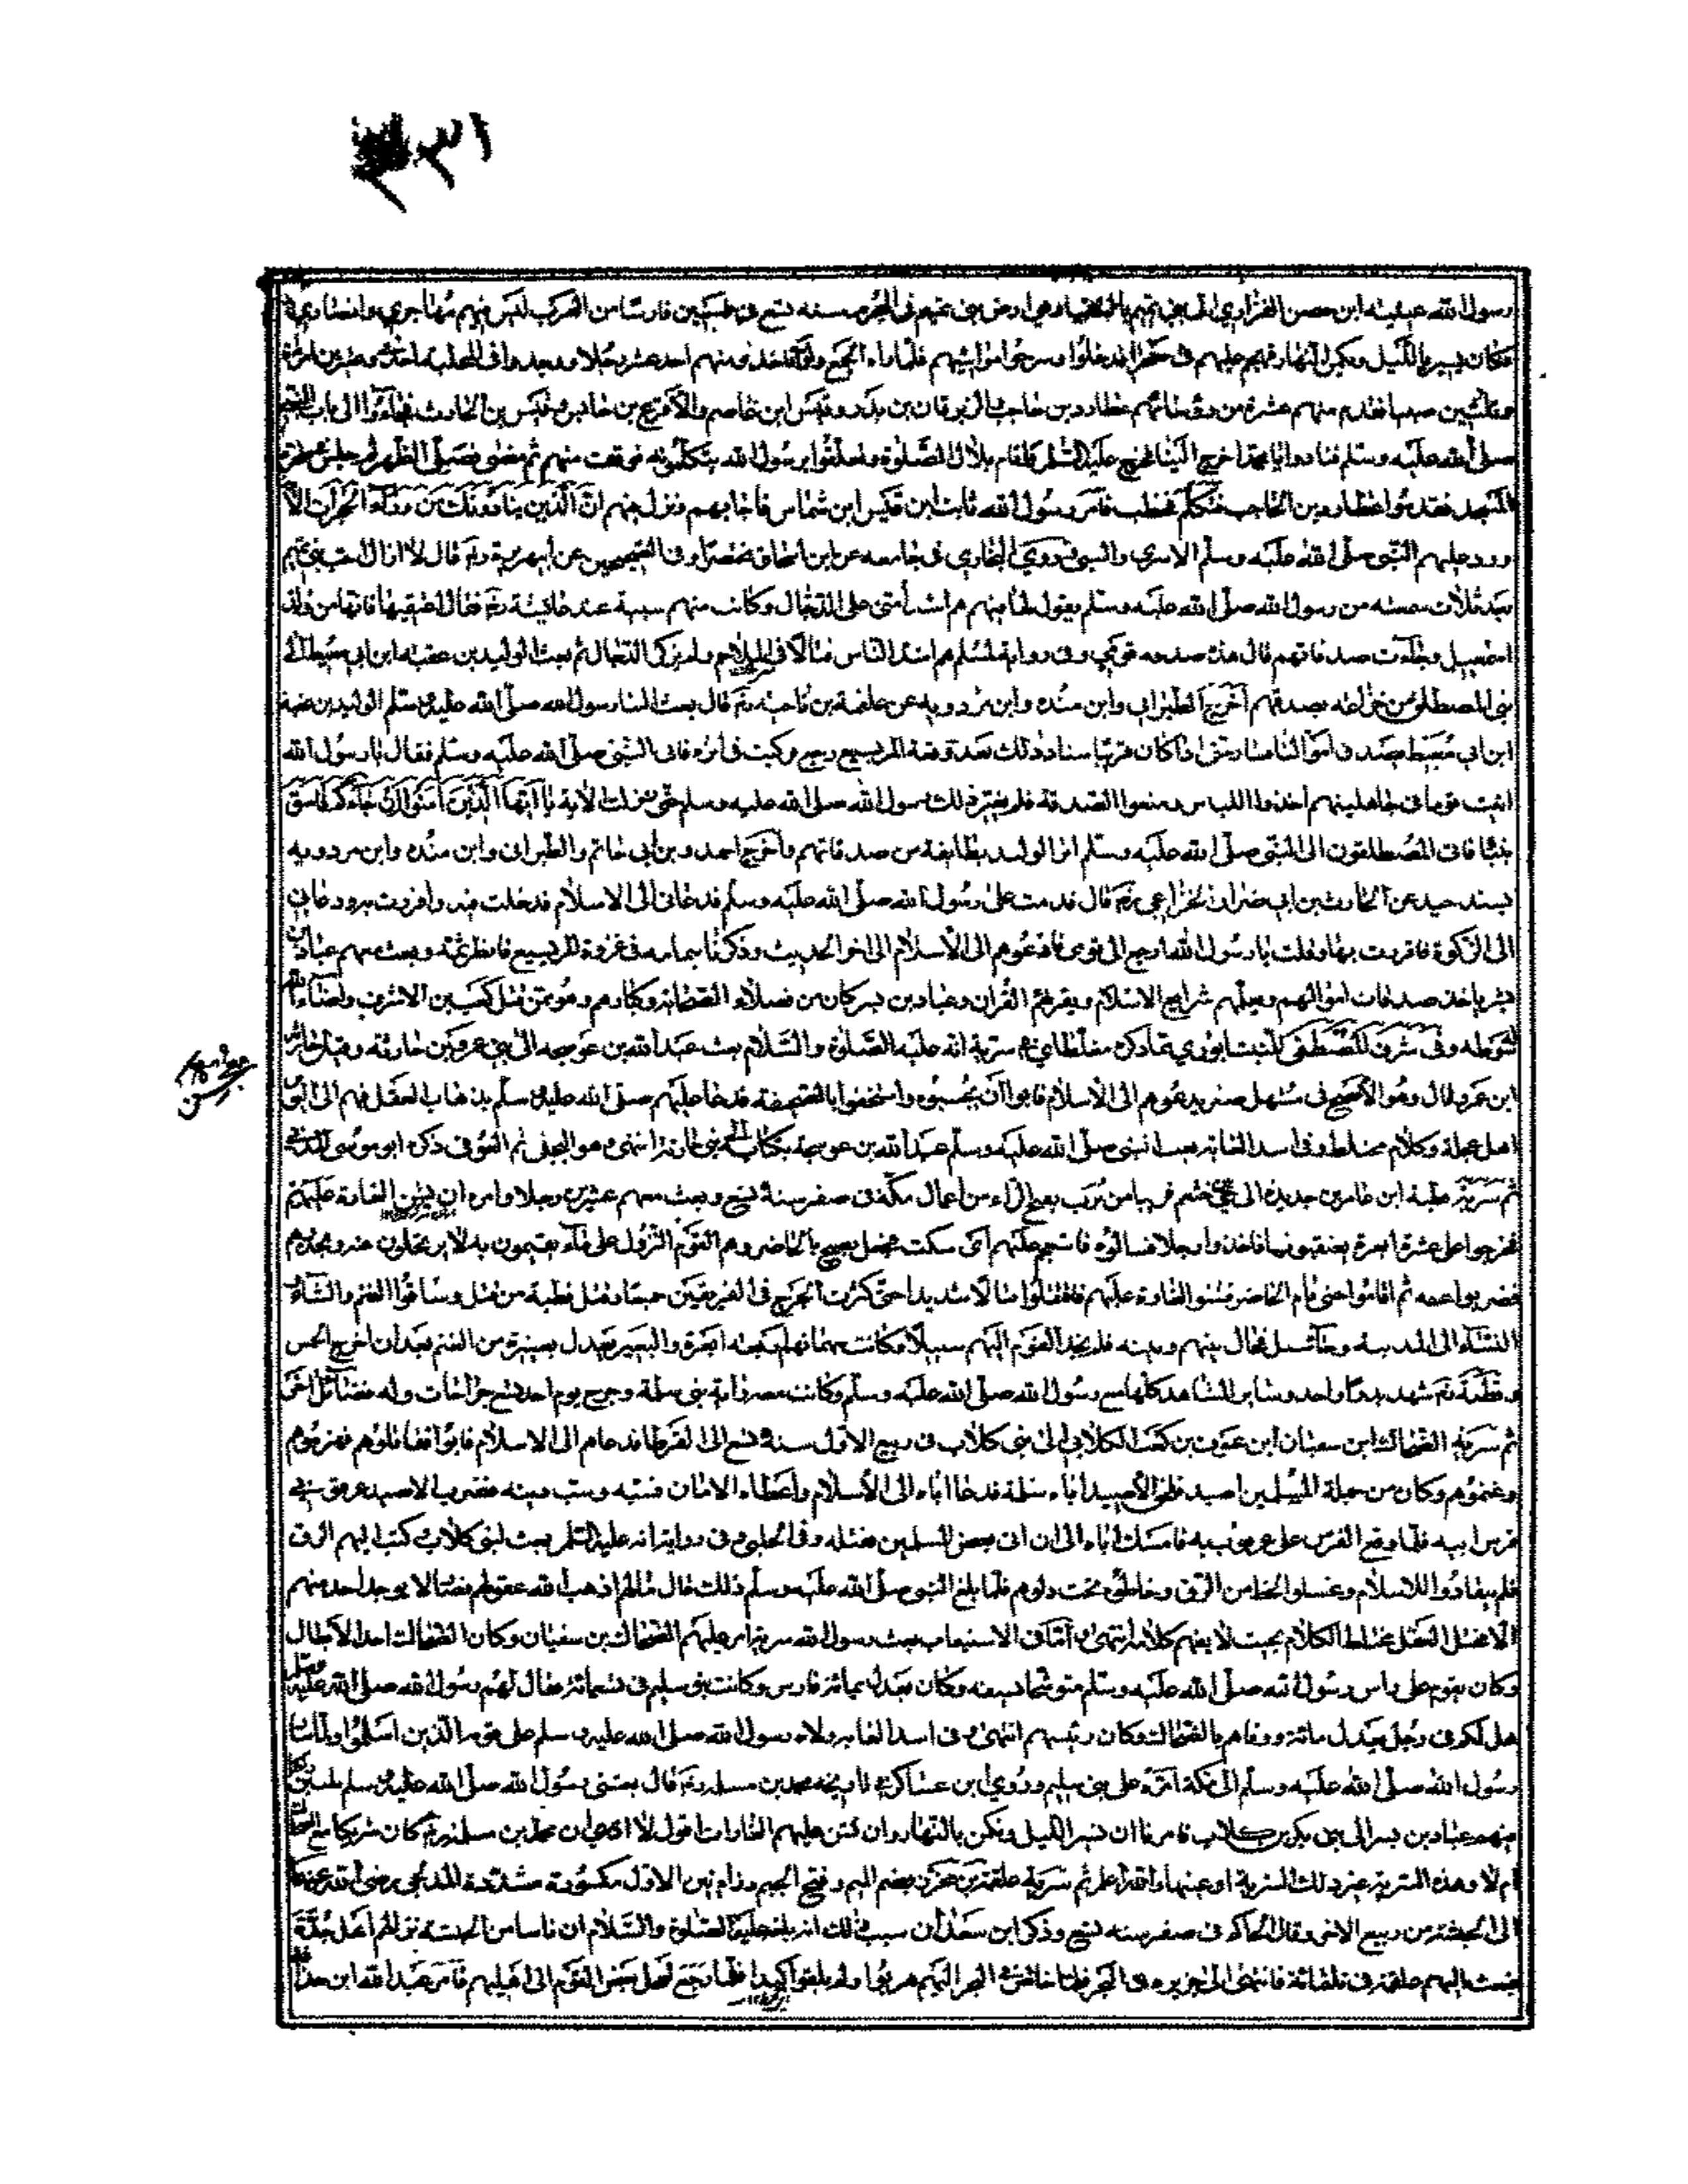 ٣٣١
رسول الله عيينه ابن حصن الفزاري الى بني تميم بالسقيا وهي ارض بني تميم في المحرم سنه تسع في خمسين فارسا من العرب ليس فيهم مهاجري ولا انصاري
فكان يسير بالليل ويكمن النهار فهجم عليهم في صحراء قد حلوا وسرحوا مواشيهم فلما راوا الجمع ولوا فاخذ منهم احد عشر رجلا ووجدوا في المحلة احدى وعشرين امراة
وثلثين صبيا فقدم منهم عشرة من رؤسائهم عطارد بن حاجب والزبرقان بن بدر وقيس ابن عاصم والاقرع بن حابس وقيس بن الحارث فجاءوا الى باب النبي
صلى الله عليه وسلم فنادوا يا محمد اخرج الينا فخرج عليه السلم واقام بلال الصلوة وتعلقوا برسول الله يكلمونه فوقف معهم ثم مضى فصلى الظهر ثم جلس في صحن
المسجد فقدموا عطارد بن الحاجب فتكلم فخطب فامر رسول الله ثابت ابن قيس ابن شماس فاجابهم ونزل فيهم ان الذين ينادونك من وراء الحجرات الآ
ورد عليهم النبي صلى الله عليه وسلم الاسرى والسبى وروى البخاري في جامعه عن ابن اسحاق مختصرا وفي الصحيحين عن ابي هريرة رضه قال لا ازال احب بني تميم
بعد ثلاث سمعته من رسول الله صلى الله عليه وسلم يقول لها فيهم هم اشد امتي على الدجال وكانت منهم سبية عند عائشة رضه فقال اعتقيها فانها من ولد
اسمعيل وجاءت صدقاتهم فقال هذه صدقه قومي وفي رواية لمسلم هم اشد الناس قتالا في الملاحم ولم يذكر الدجال ثم بعث الوليد بن عقبه ابن ابي معيط الى
بني المصطلق من خزاعه بصدقهم اخرج الطبراني وابن منده وابن مردويه عن علقمة بن ناجيه رضه قال بعث الينا رسول الله صلى الله عليه وسلم الوليد بن عقبة
ابن ابي معيط يصدق اموالنا فسار حتى اذا كان قريبا منا وذلك بعد وقعة المريسيع رجع وركبت في اثره فاتى النبي صلى الله عليه وسلم فقال يا رسول الله
اتيت قوما في جاهليتهم اخذوا اللباس ومنعوا الصدقة فلم يغير ذلك رسول الله صلى الله عليه وسلم حتى نزلت الاية يا ايها الذين امنوا ان جاءكم فاسق
بنبا فاتى المصطلقون الى النبي صلى الله عليه وسلم اثر الوليد بطايفة من صدقاتهم واخرج احمد وبن ابي حاتم والطبراني وابن منده وابن مردويه
بسند جيد عن الحارث بن ابي ضرار الخزاعي رضه قال قدمت على رسول الله صلى الله عليه وسلم فدعاني الى الاسلام فدخلت فيه واقررت به ودعاني
الى الزكوة فاقررت بها وقلت يا رسول الله ارجع الى قومي فادعوهم الى الاسلام الى اخر الحديث وذكرنا بتمامه في غزوة المريسيع فانظر ثمة وبعث معهم عباد بن
بشر ياخذ صدقات اموالهم ويعلمهم شرايع الاسلام ويقرئهم القران وعباد بن بشر كان من فضلاء الصحابة وكبارهم وهو ممن قتل كعب بن الاشرف
وفي شرف المصطفى للنيسابوري مما ذكره مغلطاي سرية انه عليه الصلوة والسلام بعث عبد الله بن عوسجه الى بني عمرو بن حارثه وقيل حارثة
ابن عمرو قال وهو الاصح في مستهل صفر يدعوهم الى الاسلام فابوا ان يجيبوه واستخفوا بالصحيفة فدعا عليهم صلى الله عليه وسلم بذهاب العقل فهم الى اليوم
اهل عجلة وكلام مختلط وفي اسد الغابه بعث النبي صلى الله عليه وسلم عبد الله بن عوسجه بكتابه الى بني حارثة انتهى وهو البجلي ثم العرني ذكره ابو موسى المديني
ثم سرية قطبة ابن عامر بن حديدة الى حي خثعم قريبا من تربة من اعمال مكة في صفر سنة تسع وبعث معهم عشرين رجلا وامره ان يشن الغارة عليهم
فخرجوا على عشرة ابعرة يعتقبونها فاخذوا رجلا فسالوه فاستعجم عليهم اى سكت فجعل يصيح بالحاضر وهم القوم النزول على ماء يقيمون به لا يرتحلون عنه ويحذرهم
فضربوا عنقه ثم اقاموا حتى نام الحاضر فشنوا الغارة عليهم فاقتتلوا قتالا شديدا حتى كثرت الجرح في الفريقين جميعا وقتل قطبة من قتل وساقوا الغنم والشاء
النساء الى المدينه وجآ سيل فحال بينهم وبينه فلم يجد القوم اليهم سبيلا وكانت سهمانهم اربعه ابعرة والبعير يعدل بعشرة من الغنم بعد ان اخرج الخمس
وقطبة رضه شهد بدرا واحد وسائر المشاهد كلها مع رسول الله صلى الله عليه وسلم وكانت معه راية بني سلمة وجرح يوم احد تسع جراحات وله فضائل اخر
ثم سرية الضحاك ابن سفيان ابن عوف بن كعب الكلابي الى بني كلاب في ربيع الاول سنة تسع الى القرطا فدعاهم الى الاسلام فابوا فقاتلوهم فهزموهم
وغنموهم وكان من جملة المسلمين اصيد فلقى الاصيد اباه سلمة فدعا اباه الى الاسلام واعطاه الامان فسبه وسب دينه فضرب الاصيد عرقوبي
فرس ابيه فلما وقع الفرس على عرقوبيه فامسك اباه الى ان اتى بعض المسلمين فقتله وفي الحلبي وفي رواية انه عليه السلم بعث لبني كلاب كتب اليهم في الرق
فلم ينقادوا للاسلام وغسلوا الخط من الرق وخاطوه تحت دلوهم فلما بلغ النبي صلى الله عليه وسلم ذلك قال ما لهم اذهب الله عقولهم فصاروا لا يوجد احد منهم
الا مختل العقل مختلط الكلام بحيث لا يفهم كلامه انتهى وفي الاستيعاب بعث رسول الله سرية امر عليهم الضحاك بن سفيان وكان الضحاك احد الابطال
وكان يقوم على راس رسول الله صلى الله عليه وسلم متوشحا سيفه وكان يعدل بمائة فارس وكانت بنو سليم في تسعمائة فقال لهم رسول الله صلى الله عليه وسلم
هل لكم في رجل يعدل مائة ووفاهم بالضحاك وكان رئيسهم انتهى وفي اسد الغابه ولاه رسول الله صلى الله عليه وسلم على قوم الذين اسلموا
رسول الله صلى الله عليه وسلم الى مكة امره على بني سليم وروى ابن عساكر في تاريخه محمد بن مسلمة رضه قال بعثني رسول الله صلى الله عليه وسلم
منهم عباد بن بشر الى بني بكر بن كلاب فامرنا ان نسير الليل ونكمن بالنهار وان نشن عليهم الغارات اقول لا ادري ان محمد بن مسلمة رضه كان شريكا مع الضحاك
ام لا وهذه السرية غير ذلك السرية او عينها والله اعلم ثم سرية علقمة بن مجزز بضم الميم وفتح الجيم وزاءين الاول مكسورة مشددة المدلجي رضي الله عنه
الى الحبشة من ربيع الاخر وقال الحاكم في صفر سنه تسع وذكر ابن سعد ان سبب ذلك انه بلغ عليه الصلوة والسلام ان ناسا من الحبشة تراهم اهل جدة
فبعث اليهم علقمة في ثلثمائة فانتهى الى جزيرة في البحر فلما خاض البحر اليهم هربوا ولم يلقوا كيدا فلما رجع تعجل بعض القوم الى اهليهم فامر عبد الله ابن حذا